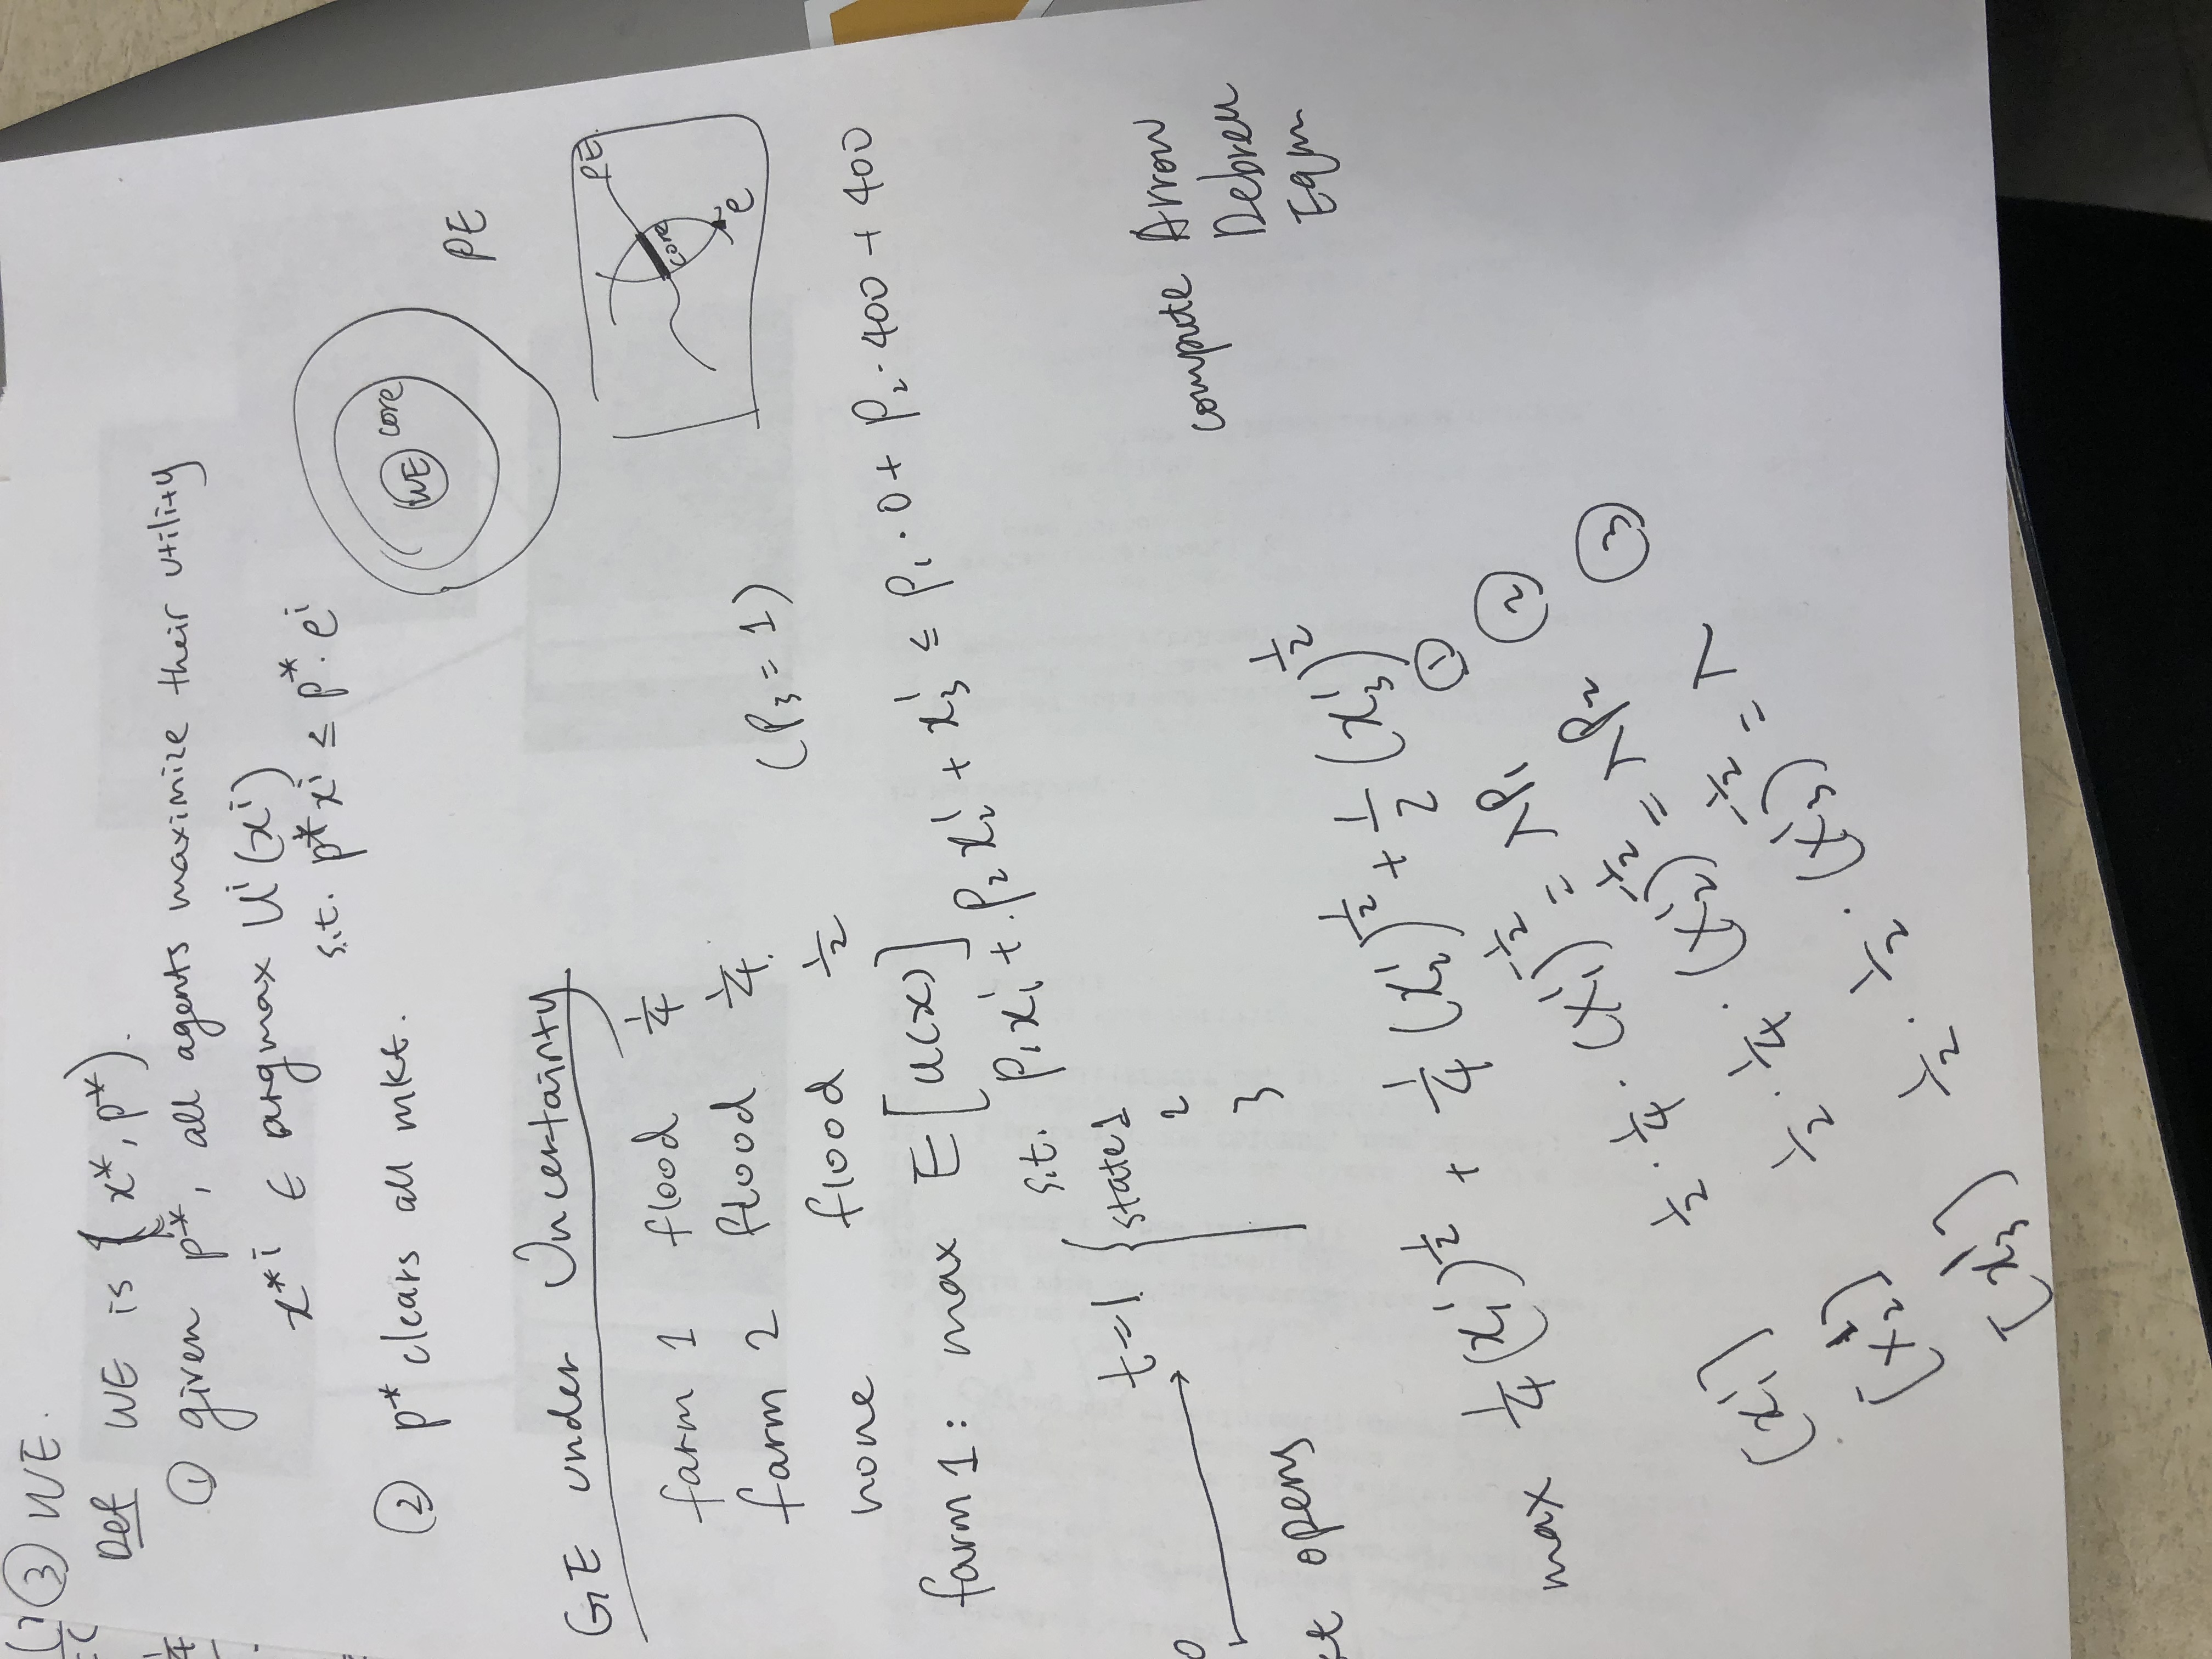 ③ WE.
Def WE is (x*, p*).
① given p*, all agents maximize their utility
x*ⁱ ∈ argmax Uⁱ(xⁱ)
s.t. p*xⁱ ≤ p*·eⁱ
② p* clears all mkt.
WE core
PE
GE under Uncertainty
PE
core
e
farm 1 flood 1/4
farm 2 flood 1/4
none flood 1/2
(P₃ = 1)
farm 1: max E[u(x)]
s.t. P₁x₁¹ + P₂x₂¹ + x₃¹ ≤ P₁·0 + P₂·400 + 400
0
t=1 { state 1
2
3
opens
compute Arrow
Debreu
Eqm
max 1/4 (x₁¹)^1/2 + 1/4 (x₂¹)^1/2 + 1/2 (x₃¹)^1/2
[x₁¹] 1/2 · 1/4 · (x₁¹)^-1/2 = λP₁ ①
[x₂¹] 1/2 · 1/4 · (x₂¹)^-1/2 = λP₂ ②
[x₃¹] 1/2 · 1/2 · (x₃¹)^-1/2 = λ ③